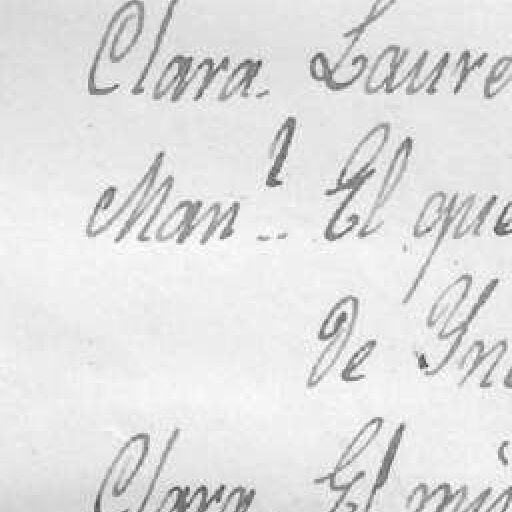 Clara. Laure
Man.l El que
de Yn
Clara El mi